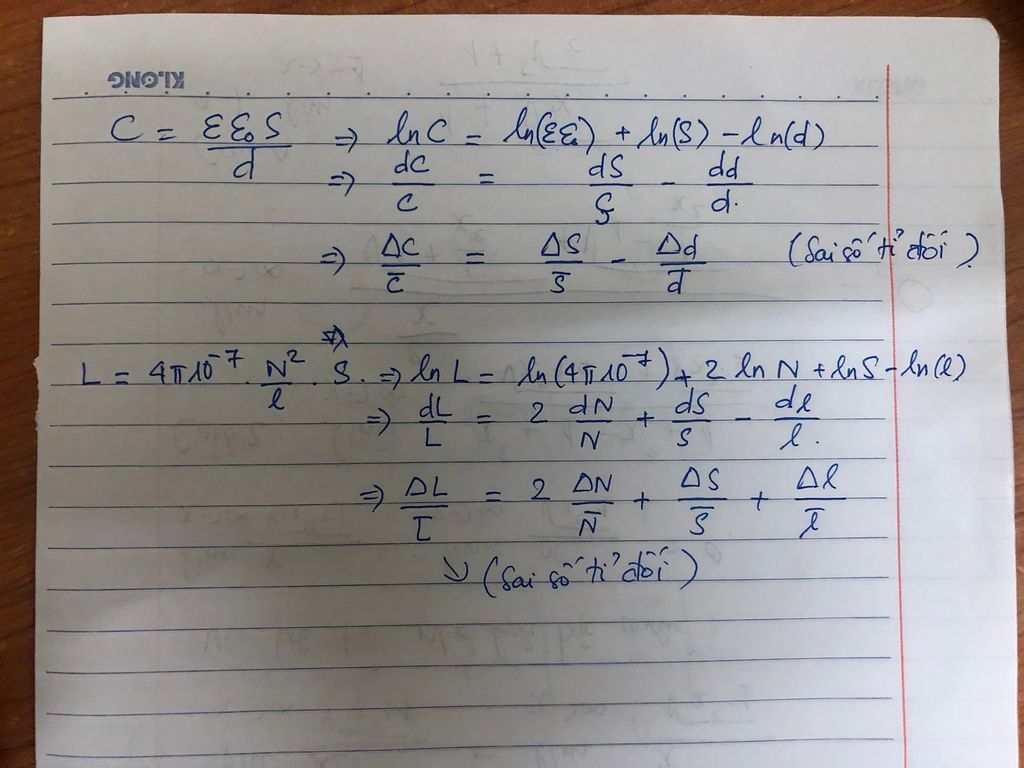 KLONG
C = εε₀S/d ⇒ lnC = ln(εε₀) + ln(S) - ln(d)
⇒ dC/C = dS/S - dd/d.
⇒ ΔC/C̅ = ΔS/S̅ - Δd/d̅ (Sai số tỉ đối).
L = 4π10⁻⁷ . N²/l . S. ⇒ ln L = ln(4π10⁻⁷) + 2 ln N + lnS - ln(l)
⇒ dL/L = 2 dN/N + dS/S - dl/l.
⇒ ΔL/L̅ = 2 ΔN/N̅ + ΔS/S̅ + Δl/l̅
↘ (Sai số tỉ đối)